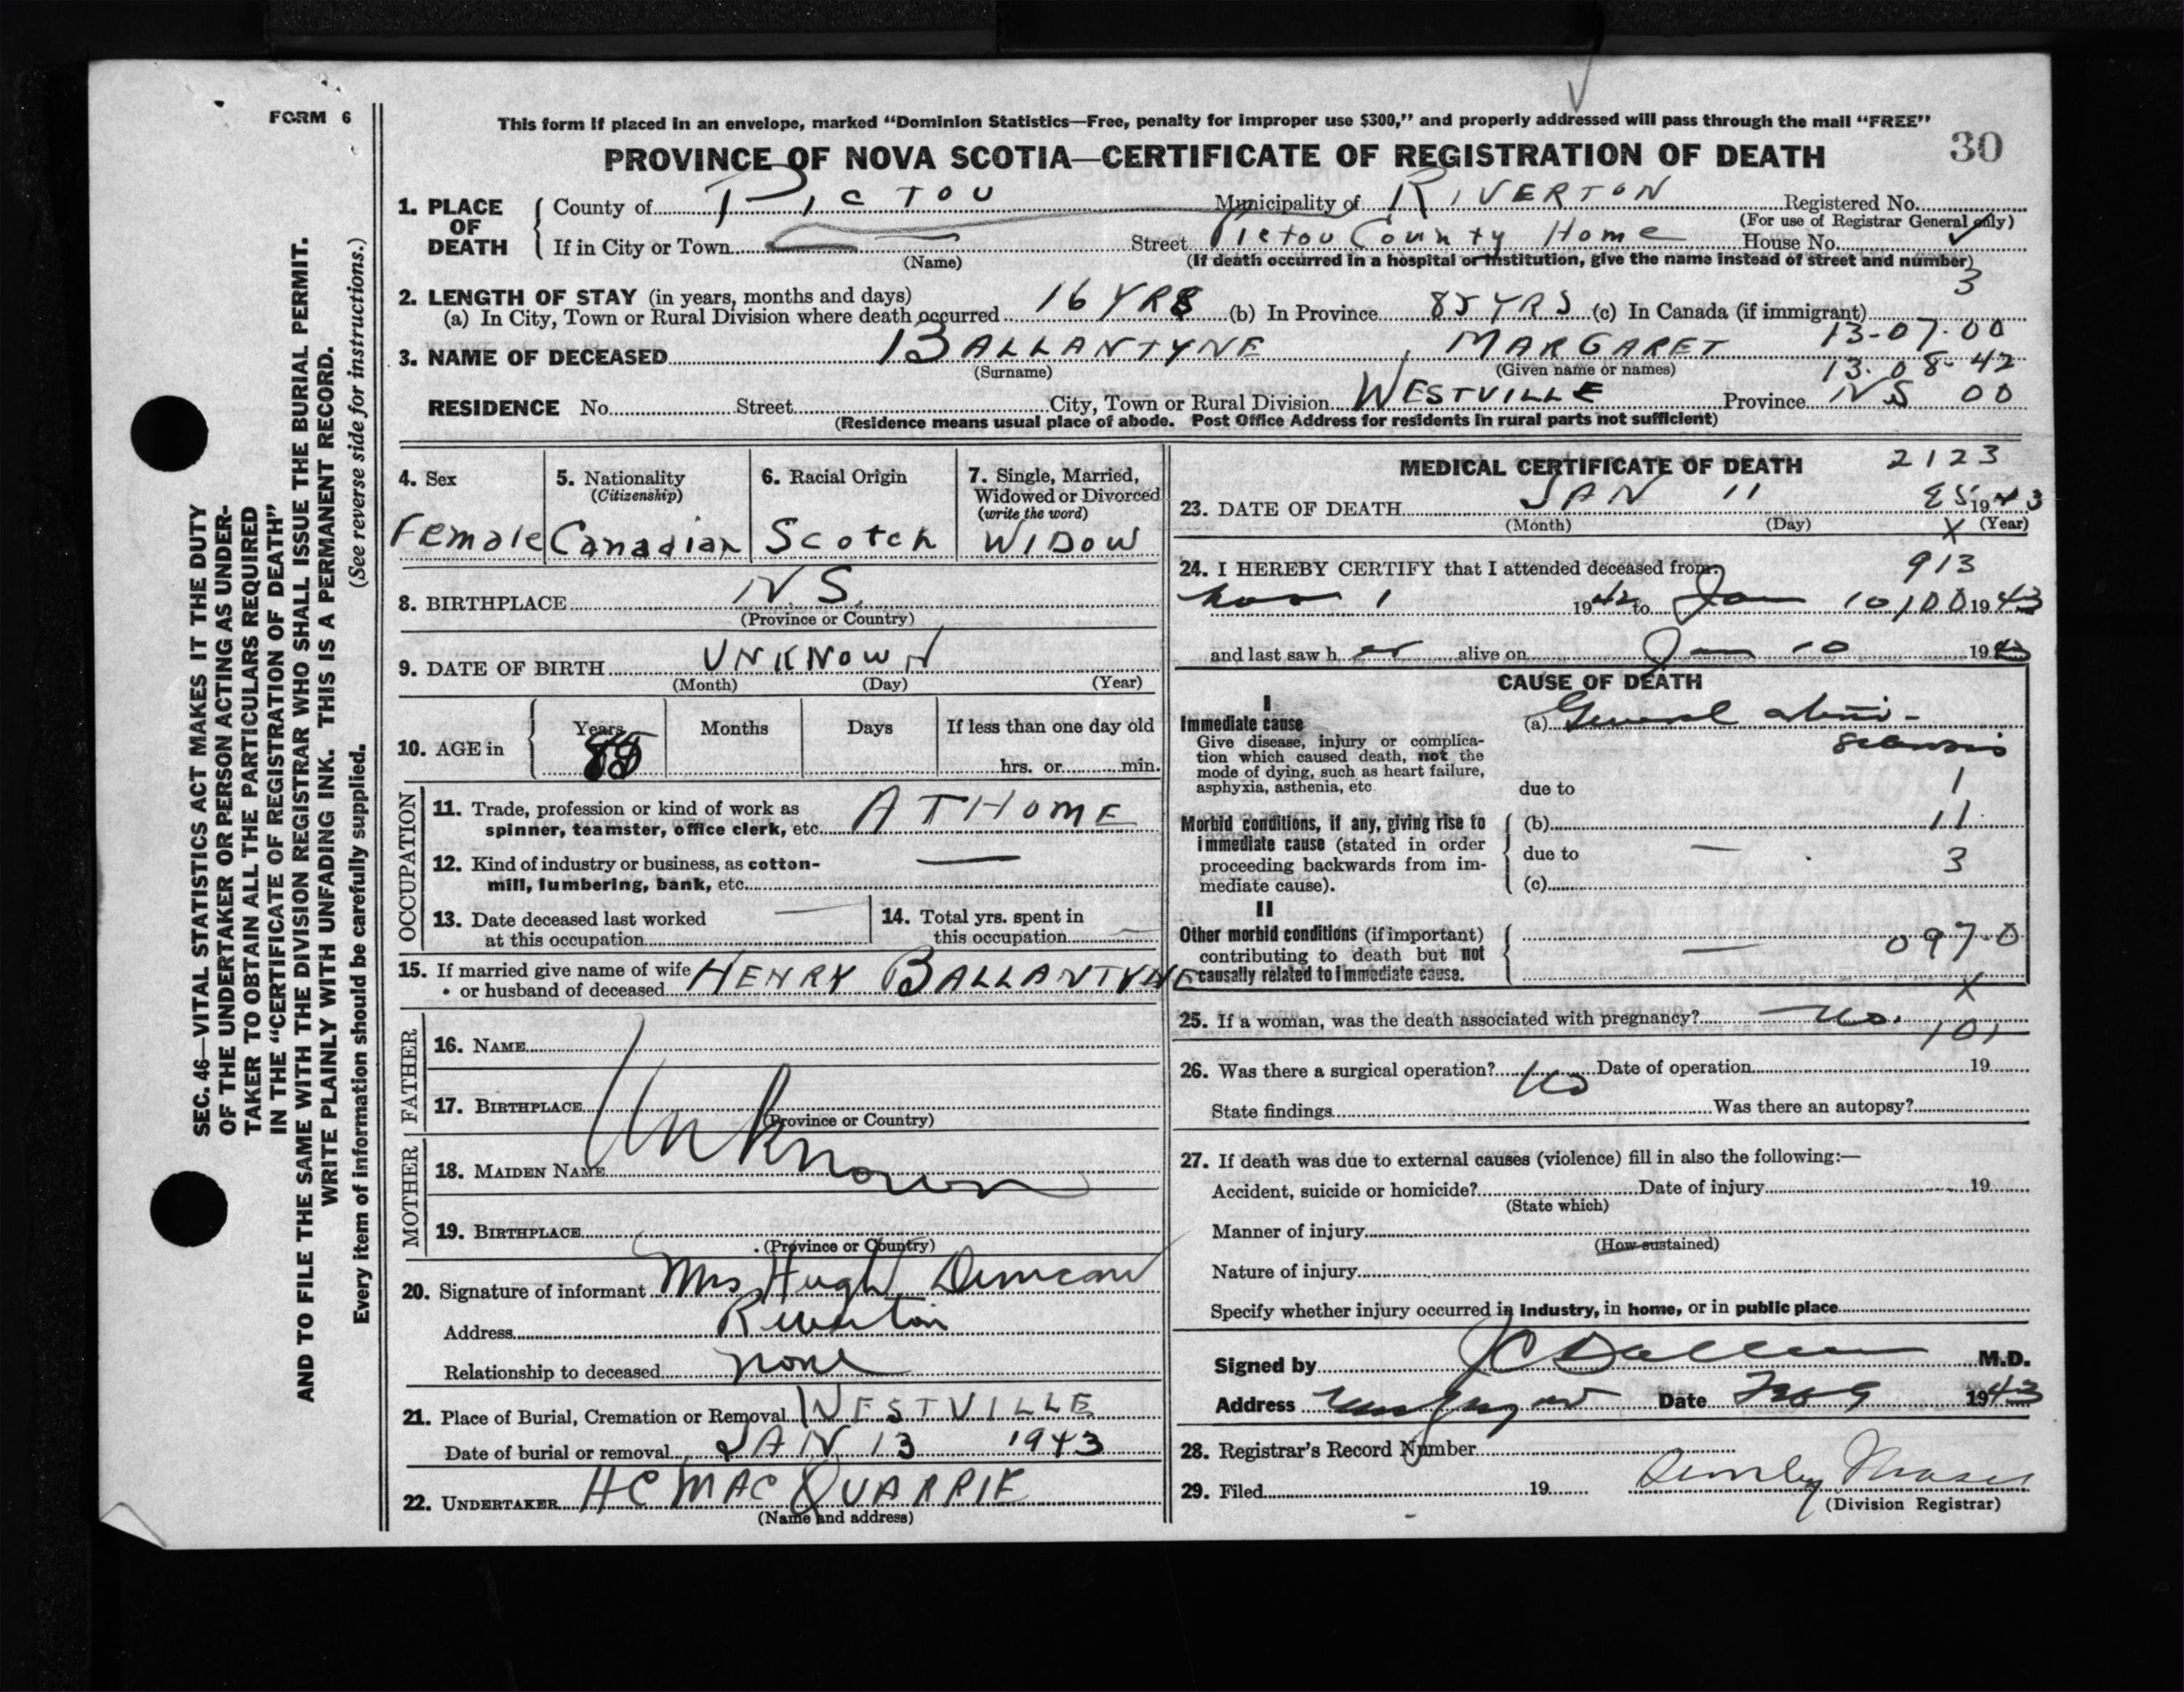 FORM 6
This form if placed in an envelope, marked “Dominion Statistics—Free, penalty for improper use $300,” and properly addressed will pass through the mail “FREE”
PROVINCE OF NOVA SCOTIA—CERTIFICATE OF REGISTRATION OF DEATH
30
1. PLACE OF DEATH
County of PICTOU Municipality of RIVERTON Registered No.
(For use of Registrar General only)
If in City or Town Street Pictou County Home House No.
(Name) (If death occurred in a hospital or institution, give the name instead of street and number)
3
2. LENGTH OF STAY (in years, months and days)
(a) In City, Town or Rural Division where death occurred 16 YRS (b) In Province 85 YRS (c) In Canada (if immigrant)
13-07-00
3. NAME OF DECEASED BALLANTYNE, MARGARET
(Surname) (Given name or names) 13-08-42
RESIDENCE No. Street City, Town or Rural Division WESTVILLE Province NS 00
(Residence means usual place of abode. Post Office Address for residents in rural parts not sufficient)
4. Sex
Female
5. Nationality
(Citizenship)
Canadian
6. Racial Origin
Scotch
7. Single, Married,
Widowed or Divorced
(write the word)
WIDOW
8. BIRTHPLACE N.S.
(Province or Country)
9. DATE OF BIRTH UNKNOWN
(Month) (Day) (Year)
10. AGE in
Years Months Days If less than one day old
85
hrs. or min.
OCCUPATION
11. Trade, profession or kind of work as
spinner, teamster, office clerk, etc. AT HOME
12. Kind of industry or business, as cotton-
mill, lumbering, bank, etc. —
13. Date deceased last worked
at this occupation —
14. Total yrs. spent in
this occupation —
15. If married give name of wife
or husband of deceased HENRY BALLANTYNE
FATHER
16. NAME
17. BIRTHPLACE
(Province or Country)
Unknown
MOTHER
18. MAIDEN NAME
19. BIRTHPLACE
(Province or Country)
20. Signature of informant Mrs Hugh Duncan
Address Riverton
Relationship to deceased none
21. Place of Burial, Cremation or Removal WESTVILLE
Date of burial or removal JAN 13 1943
22. UNDERTAKER HC MACQUARRIE
(Name and address)
MEDICAL CERTIFICATE OF DEATH
2123
23. DATE OF DEATH JAN 11 1943
(Month) (Day) (Year)
X
24. I HEREBY CERTIFY that I attended deceased from:
913
Nov 1 1942 to Jan 10 1943
and last saw her alive on Jan 10 1943
CAUSE OF DEATH
I
Immediate cause
Give disease, injury or complica-
tion which caused death, not the
mode of dying, such as heart failure,
asphyxia, asthenia, etc
(a) General arterio-
sclerosis
due to
1
Morbid conditions, if any, giving rise to
immediate cause (stated in order
proceeding backwards from im-
mediate cause).
(b) 11
due to —
3
(c)
II
Other morbid conditions (if important)
contributing to death but not
causally related to immediate cause.
— 097-0
X
25. If a woman, was the death associated with pregnancy? No.
101
26. Was there a surgical operation? No Date of operation 19
State findings Was there an autopsy?
27. If death was due to external causes (violence) fill in also the following:—
Accident, suicide or homicide? Date of injury 19
(State which)
Manner of injury
(How sustained)
Nature of injury
Specify whether injury occurred in industry, in home, or in public place
Signed by M.D.
Address New Glasgow Date Feb 9 1943
28. Registrar's Record Number
29. Filed 19 Fraser
(Division Registrar)
SEC. 46—VITAL STATISTICS ACT MAKES IT THE DUTY
OF THE UNDERTAKER OR PERSON ACTING AS UNDER-
TAKER TO OBTAIN ALL THE PARTICULARS REQUIRED
IN THE “CERTIFICATE OF REGISTRATION OF DEATH”
AND TO FILE THE SAME WITH THE DIVISION REGISTRAR WHO SHALL ISSUE THE BURIAL PERMIT.
WRITE PLAINLY WITH UNFADING INK. THIS IS A PERMANENT RECORD.
Every item of information should be carefully supplied. (See reverse side for instructions.)